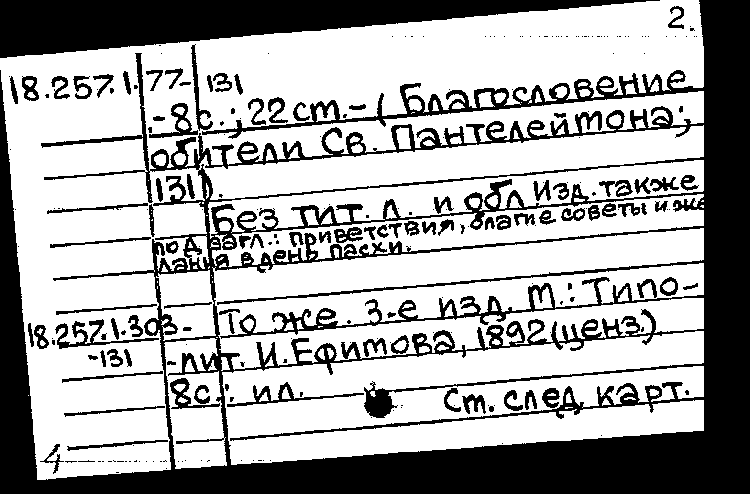 2.
18.257.1.77-131
-8с.; 22 см.-(Благословение
обители Св. Пантелеймона;
131).
Без тит. л. и обл Изд. также
под загл.: приветствия, благие советы и же
лания в день пасхи.
18.257.1.303- То же. 3-е изд. М.: Типо-
-131 -лит. И. Ефимова, 1892 (ценз.).
8с.: ил.
См. след. карт.
4